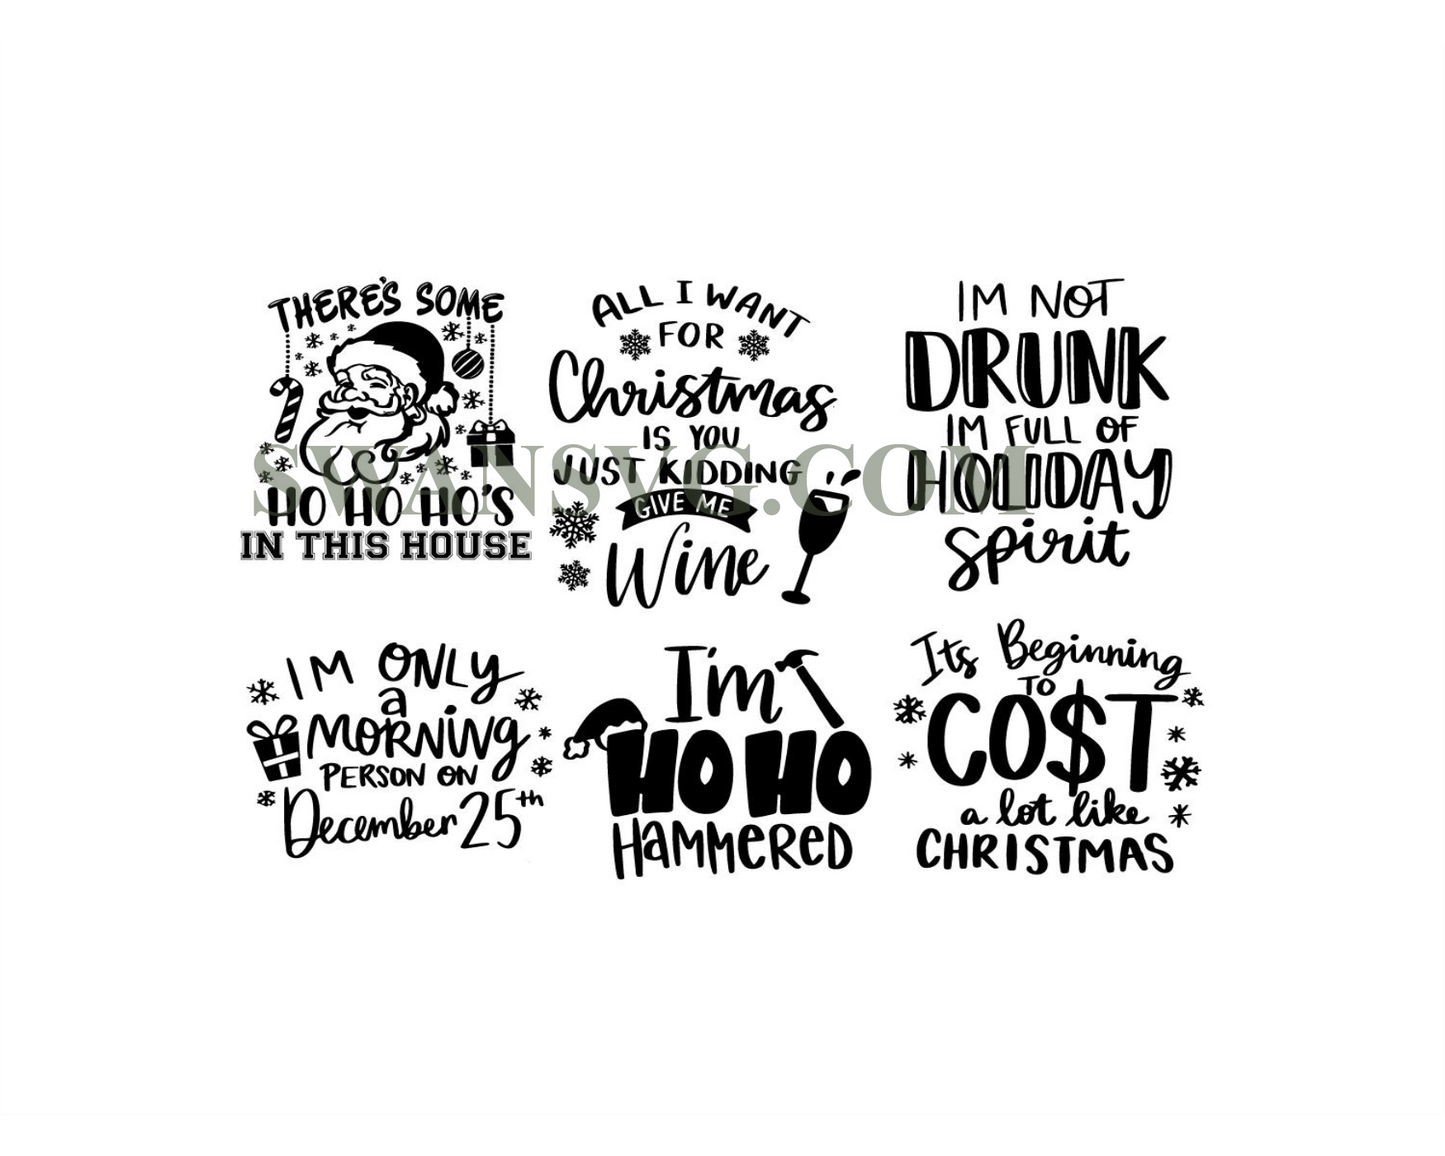 THERE'S SOME
HO HO HO'S
IN THIS HOUSE
ALL I WANT
FOR
Christmas
IS YOU
JUST KIDDING
GIVE ME
Wine
IM NOT
DRUNK
IM FULL OF
HOLIDAY
spirit
SWANSVG.COM
IM ONLY
a
MORNING
PERSON ON
December 25th
I'm
HO HO
HAMMERED
Its Beginning
TO
CO$T
a lot like
CHRISTMAS